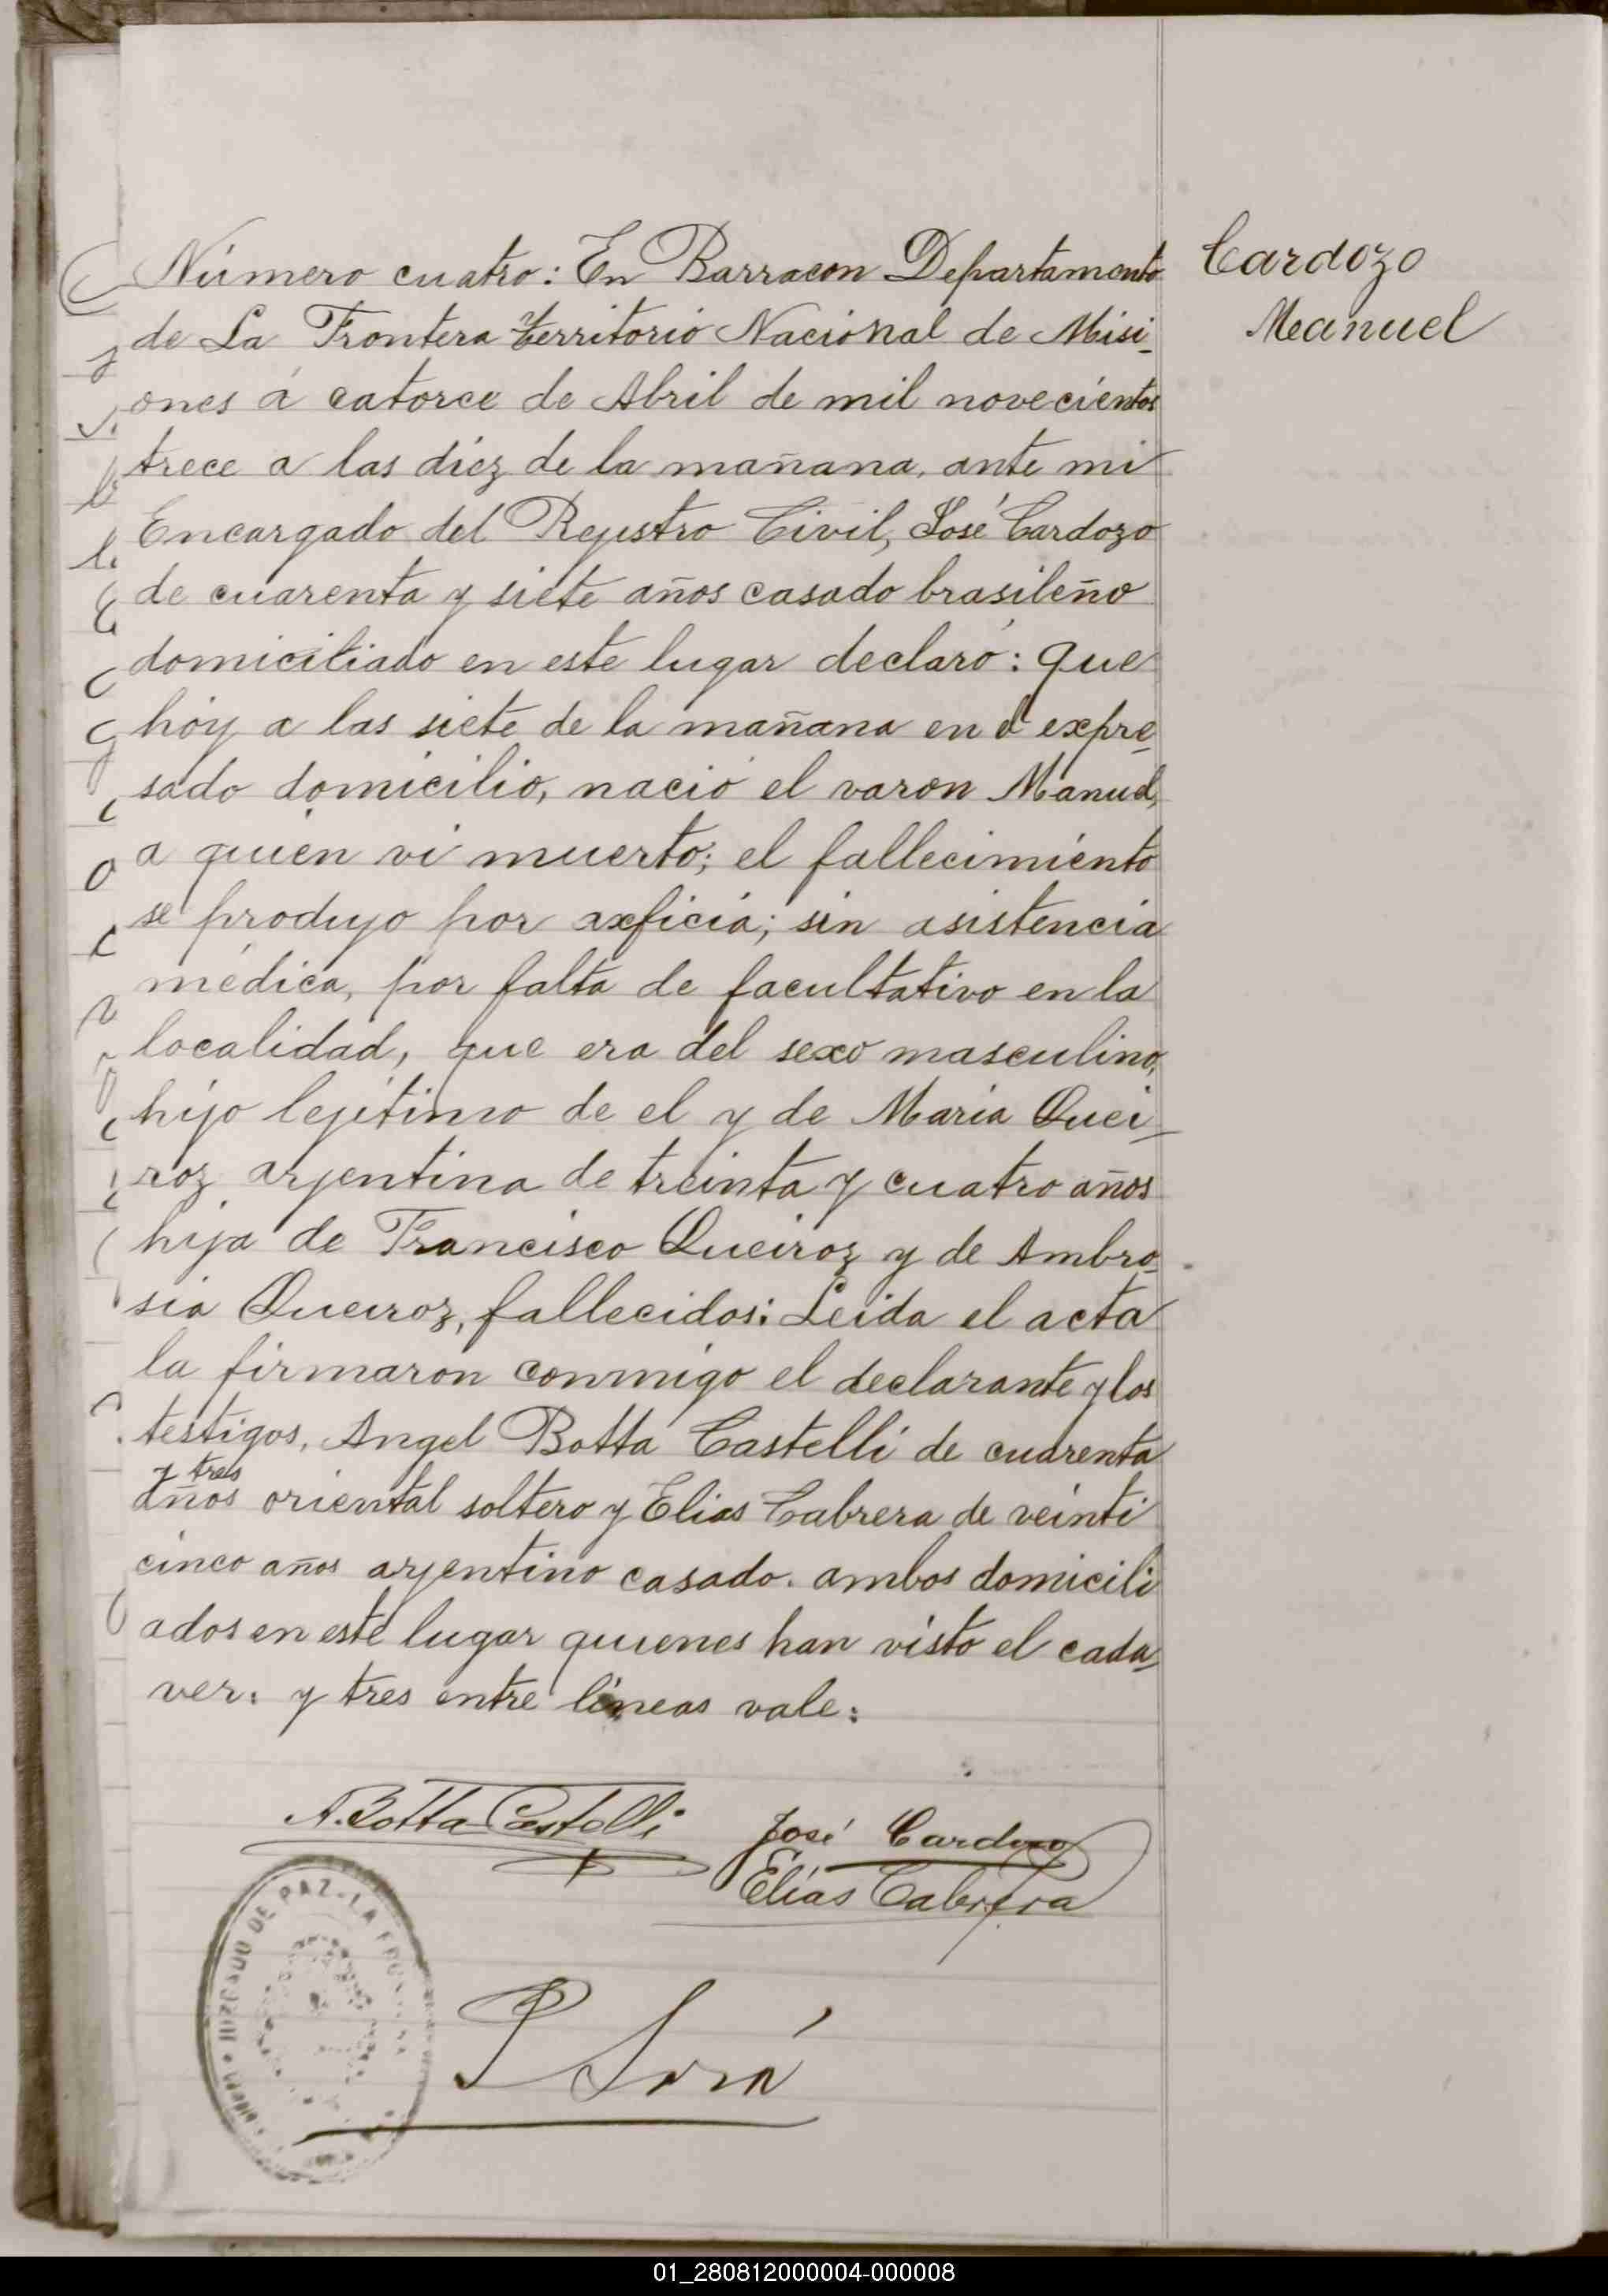 Número cuatro: En Barracon Departamento
Cardozo
Manuel
de La Frontera Territorio Nacional de Misi-
ones á catorce de Abril de mil novecientos
trece a las diez de la mañana, ante mi
Encargado del Rejistro Civil, José Cardozo
de cuarenta y siete años casado brasileño
domiciliado en este lugar declaró: que
hóy a las siete de la mañana en el expre-
sado domicilio, nació el varon Manuel,
a quien vi muerto; el fallecimiento
se produjo por axficia; sin asistencia
médica, por falta de facultativo en la
localidad, que era del sexo masculino,
hijo lejitimo de el y de Maria Quei-
roz arjentina de treinta y cuatro años
hija de Francisco Queiroz y de Ambro-
sia Queiroz, fallecidos: Leida el acta
la firmaron conmigo el declarante y los
testigos, Angel Botta Castelli de cuarenta
y tres
años oriental soltero y Elias Cabrera de veinti
cinco años arjentino casado. ambos domicili
ados en este lugar quienes han visto el cada-
ver: y tres entre líneas vale:
A. Botta Castelli
José Cardozo
Elías Cabrera
JUZGADO DE PAZ - LA
01_280812000004-000008